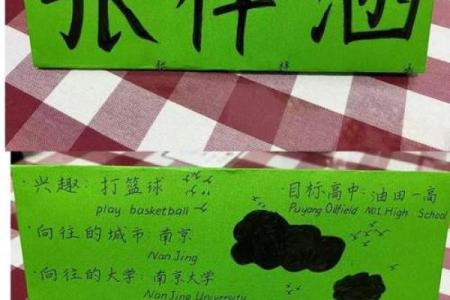 张梓涵
兴趣：打篮球
play basketball
向往的城市：南京
Nan Jing
向往的大学：南京大学
Nan Jing University
目标高中：油田一高
Puyang Oilfield NO1 High School